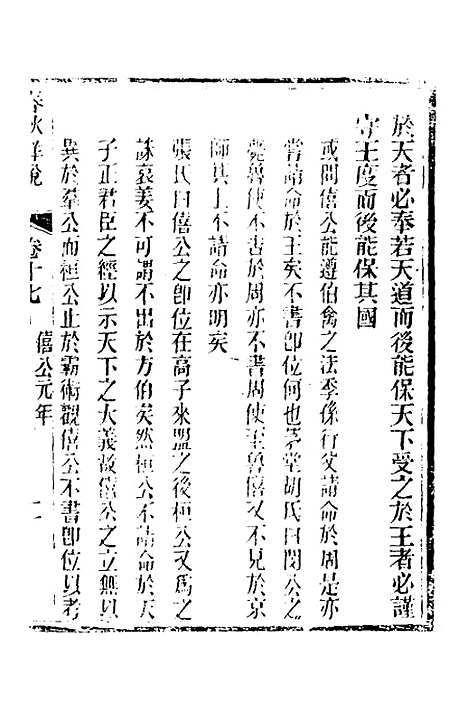 於天者必奉若天道而後能保天下受之於王者必謹
守王度而後能保其國
或問僖公能遵伯禽之法季孫行父請命於周是亦
嘗請命於王矣不書即位何也茅堂胡氏曰閔公之
薨魯使不告於周亦不書周使至魯僖又不見於京
師其上不請命亦明矣
張氏曰僖公之即位在高子來盟之後桓公又為之
誅哀姜不可謂不出於方伯矣然桓公不請命於天
子正君臣之經以示天下之大義故僖公之立無以
異於羣公而桓公止於霸術觀僖公不書即位以考
春秋詳說
卷十七
僖公元年